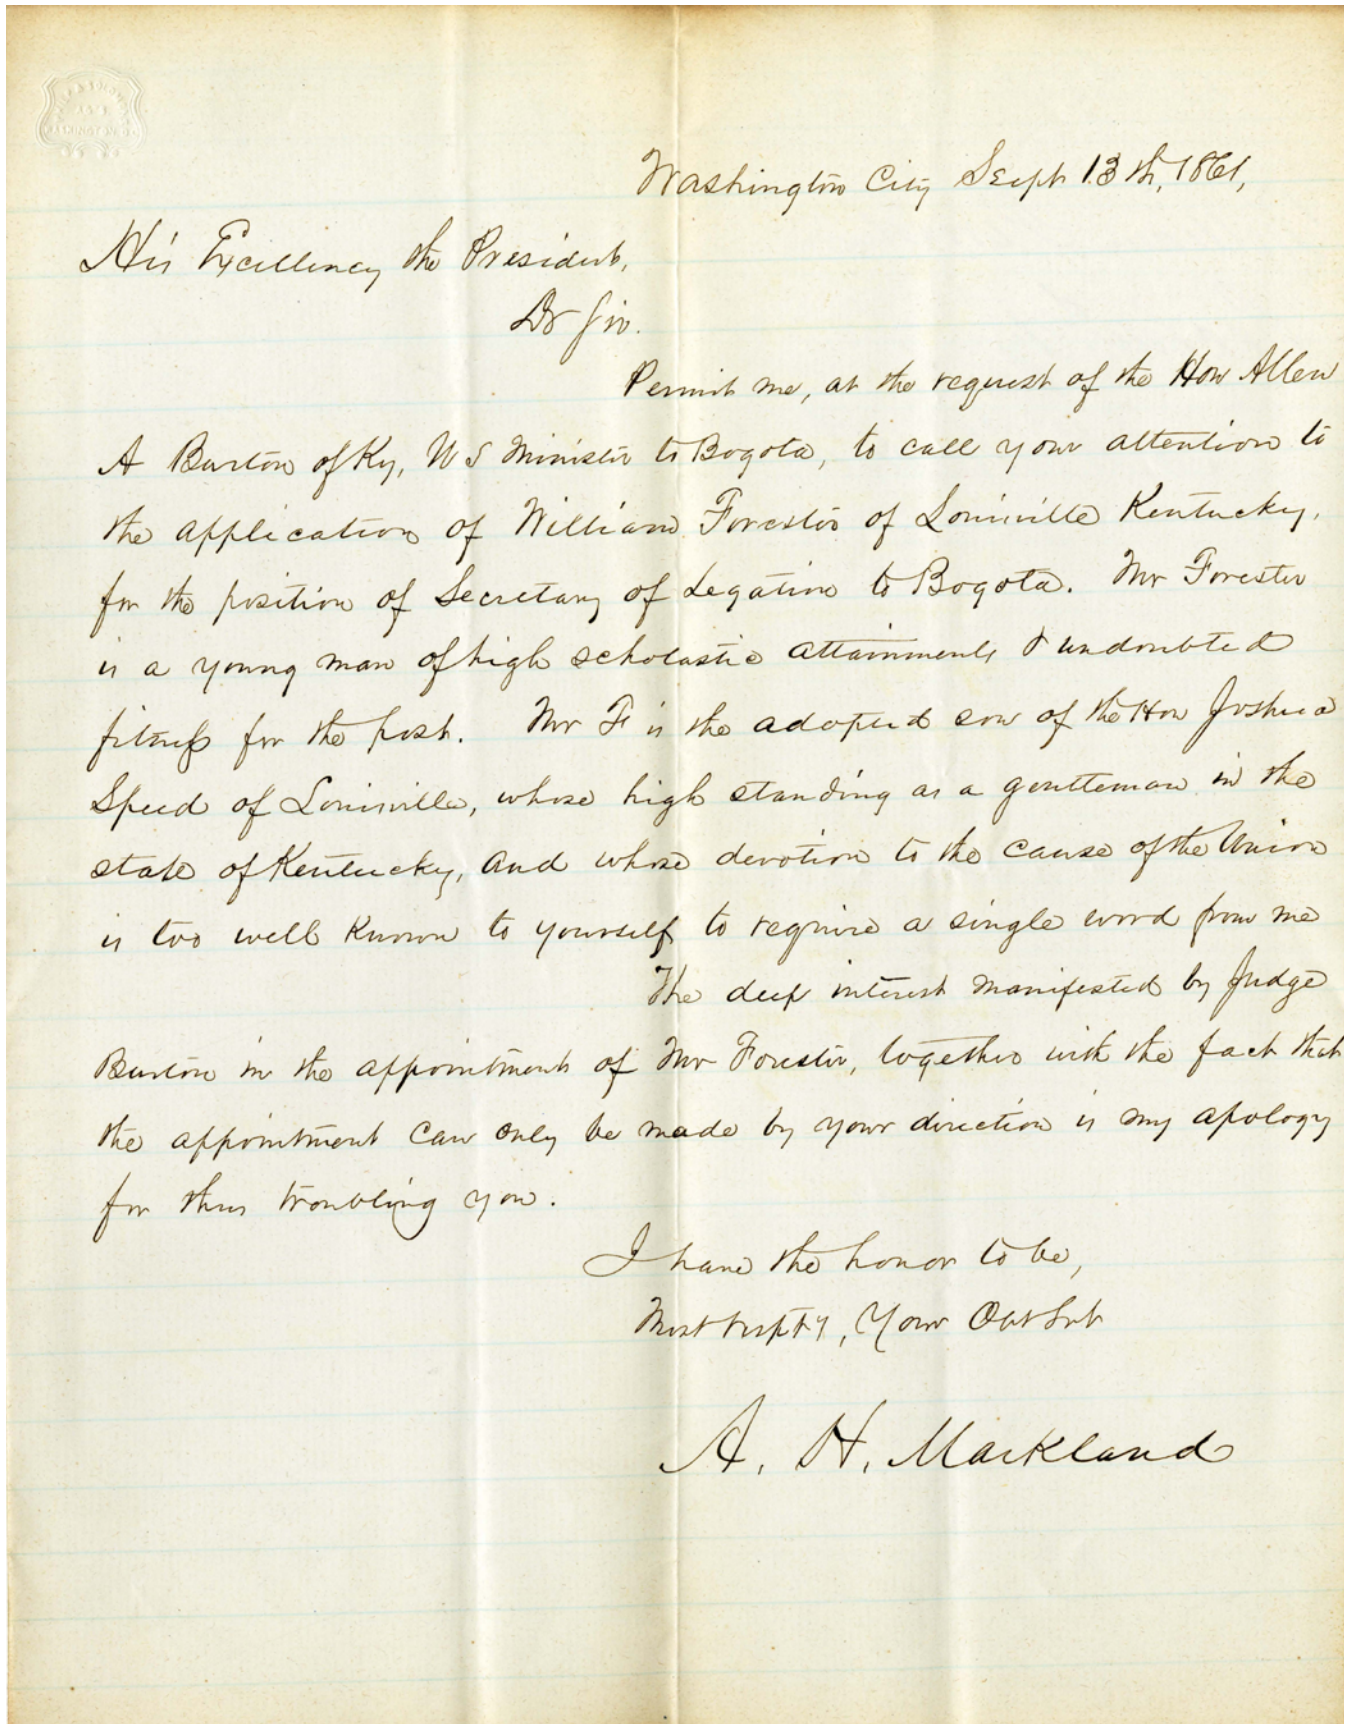 Washington City Sept 13th, 1861,
His Excellency the President,
Dr Sir.
Permit me, at the request of the Hon Allen
A Burton of Ky, U S Minister to Bogota, to call your attention to
the application of William Forester of Louisville Kentucky,
for the position of Secretary of Legation to Bogota. Mr Forester
is a young man of high scholastic attainments & undoubted
fitness for the post. Mr F is the adopted son of the Hon Joshua
Speed of Louisville, whose high standing as a gentleman in the
state of Kentucky, and whose devotion to the cause of the Union
is too well known to yourself to require a single word from me
The deep interest manifested by Judge
Burton in the appointment of Mr Forester, together with the fact that
the appointment can only be made by your direction is my apology
for thus troubling you.
I have the honor to be,
Most respty, Your Obt Svt
A. H. Markland